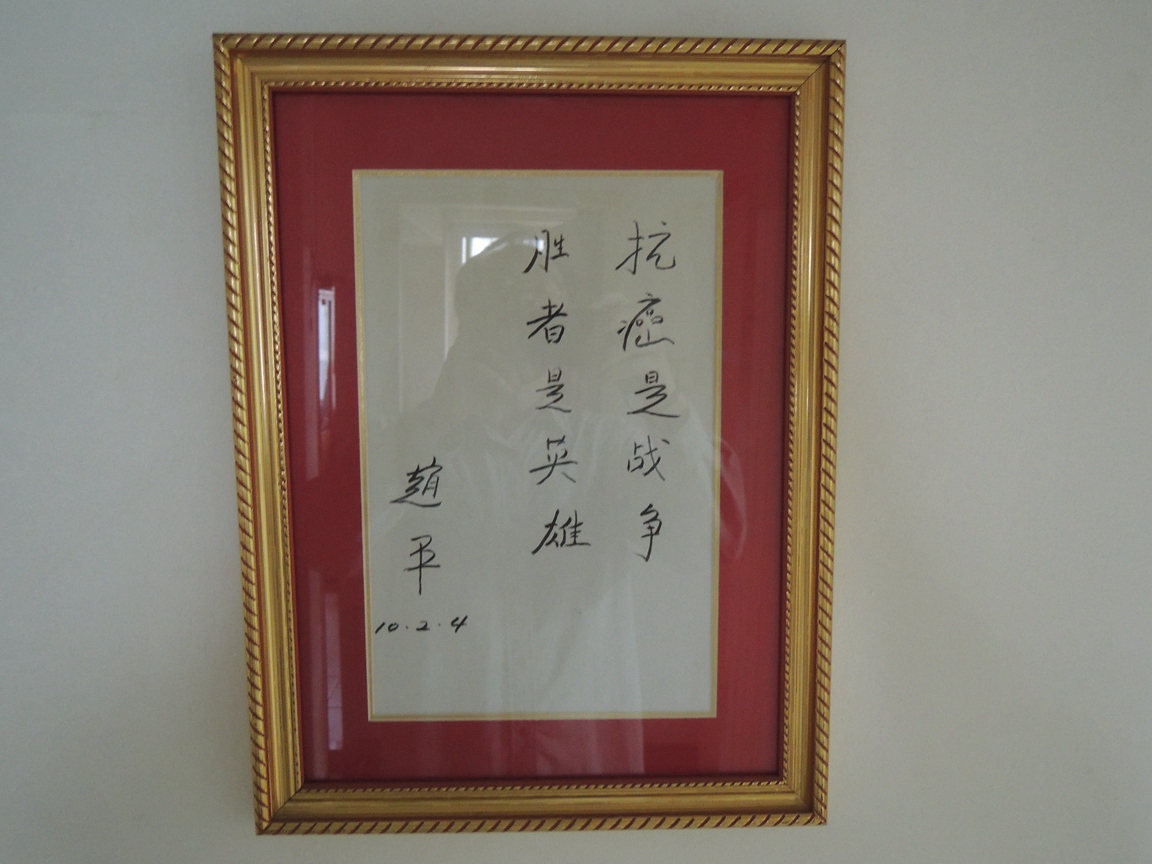 抗癌是战争
胜者是英雄
趙平
10.2.4